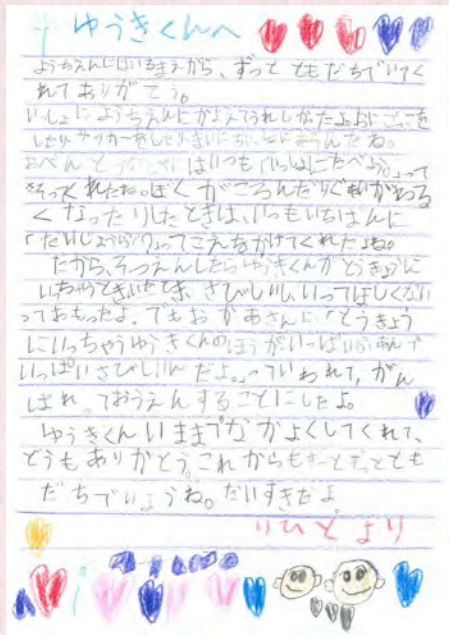 ゆうきくんへ
ようちえんにはいるまえから、ずっと ともだちでいてく
れてありがとう。
いっしょにようちえんにかよえてうれしかったよ。おにごっこを
したりサッカーをしたりまいにちいっしょにあそんだね。
おべんとう はいつも「いっしょにたべよう。」って
さそってくれたね。ぼくがころんだりぐあいがわる
くなったりしたときは、いつもいちばんに
「だいじょうぶ?」ってこえをかけてくれたよね。
だから、そつえんしたらゆうきくんがとうきょうに
いっちゃうときいたとき、さびしい、いってほしくない
っておもったよ。でもおかあさんに「とうきょう
にいっちゃうゆうきくんのほうがいっぱいふあんで
いっぱいさびしいんだよ。」っていわれて、がん
ばれっておうえんすることにしたよ。
ゆうきくんいままでなかよくしてくれて、
どうもありがとう。これからもずーとずっととも
だちでいようね。だいすきだよ。
りひとより